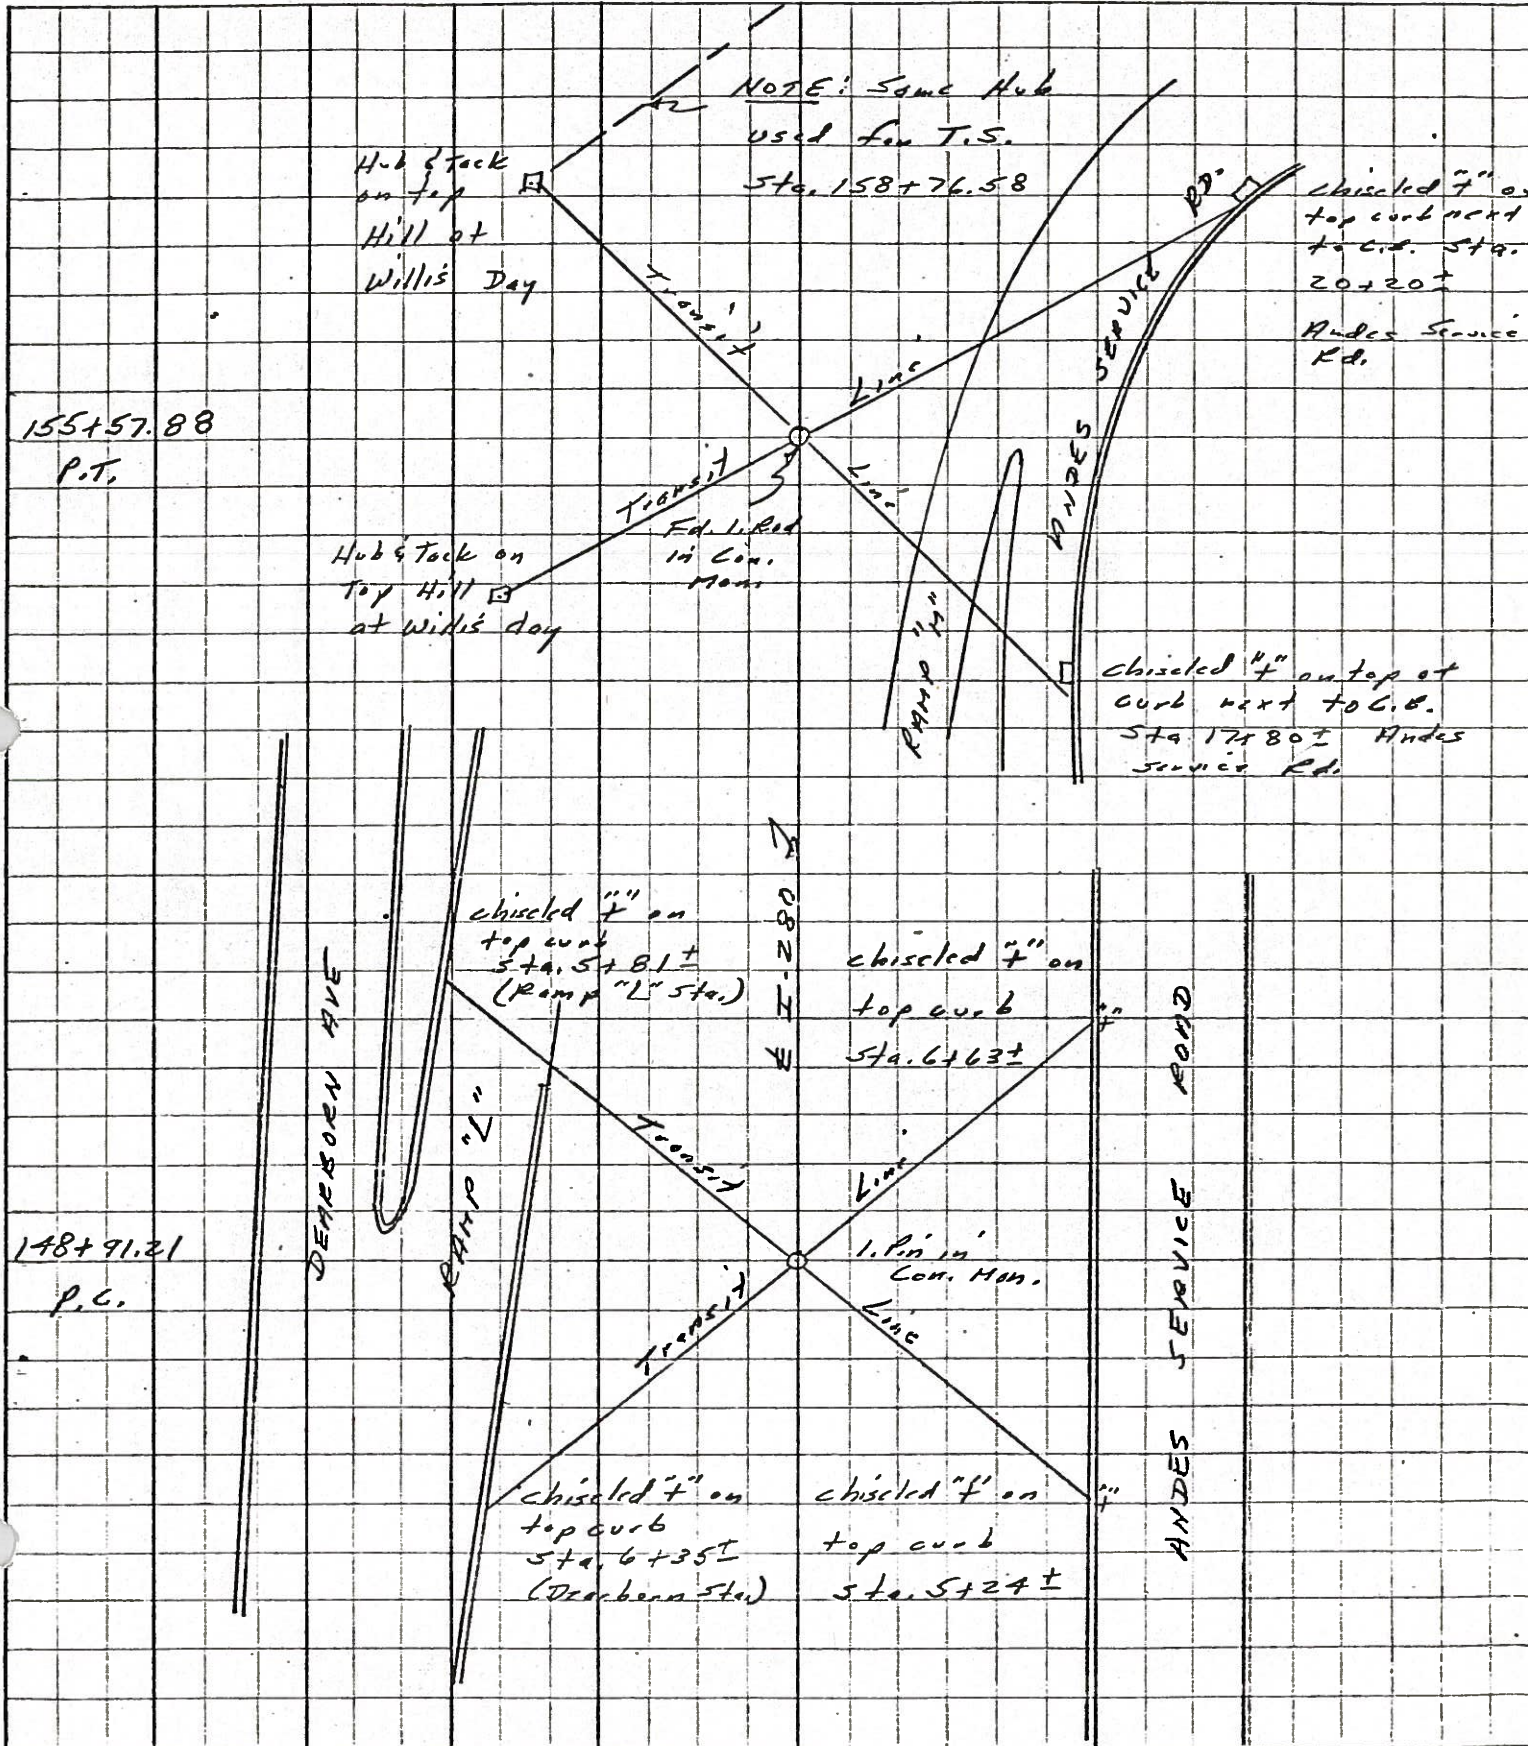 NOTE: Same Hub
used for T.S.
Sta. 158+76.58
Hub & Tack
on top
Hill at
Willis Day
chiseled "+" on
top curb next
to C.B. Sta.
20+20±
Andes Service
Rd.
Transit
Line
ANDES SERVICE RD.
155+57.88
P.T.
Transit
Line
Fd. I. Rod
in Con.
Mon.
Hub & Tack on
Top Hill
at Willis day
RAMP "M"
chiseled "+" on top of
curb next to C.B.
Sta 17+80± Andes
Service Rd.
℄ I-280
chiseled "+" on
top curb
Sta. 5+81±
(Ramp "L" Sta.)
chiseled "+" on
top curb
Sta. 6+63±
"+"
DEARBORN AVE
RAMP "L"
Transit
Line
ANDES SERVICE ROAD
148+91.21
P.C.
I. Pin in
Con. Mon.
Transit
Line
chiseled "+" on
top curb
Sta. 6+35±
(Dearborn Sta.)
chiseled "+" on
top curb
Sta. 5+24±
"+"